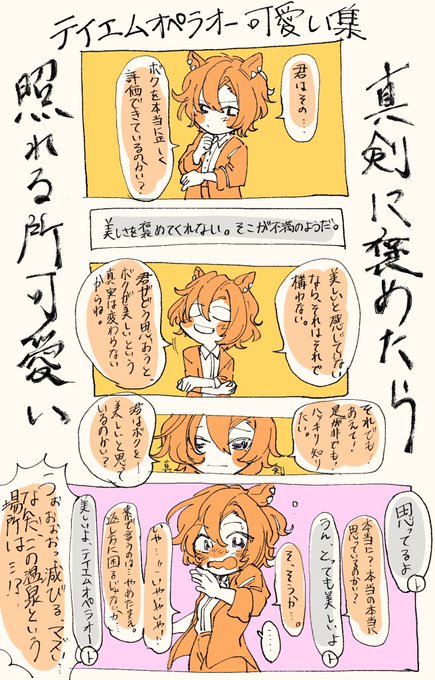 テイエムオペラオー可愛い集
真剣に褒めたら
照れる所可愛い
君はその…
ボクを本当に正しく
評価できているのかい？
美しさを褒めてくれない。そこが不満のようだ。
美しいと感じていない
なら、それはそれで
構わない。
君がどう思おうと
ボクが美しいという
真実は変わらない
からね。
それでも
あえて！
是非でも！
ハッキリ知り
たい。
君はボクを
美しいと思って
いるのかい？
思ってるよ
ト
本当に？本当の本当に
思っているのかい？
うん、とっても美しいよ
ト
そ、そうか…
……
い や…!!いやいやいや!!
素で言うのは…やめたまえ
返し方に困るじゃないか
美しいよ、テイエムオペラオー
ト
うぉぉぉぉっ滅びるマズ！